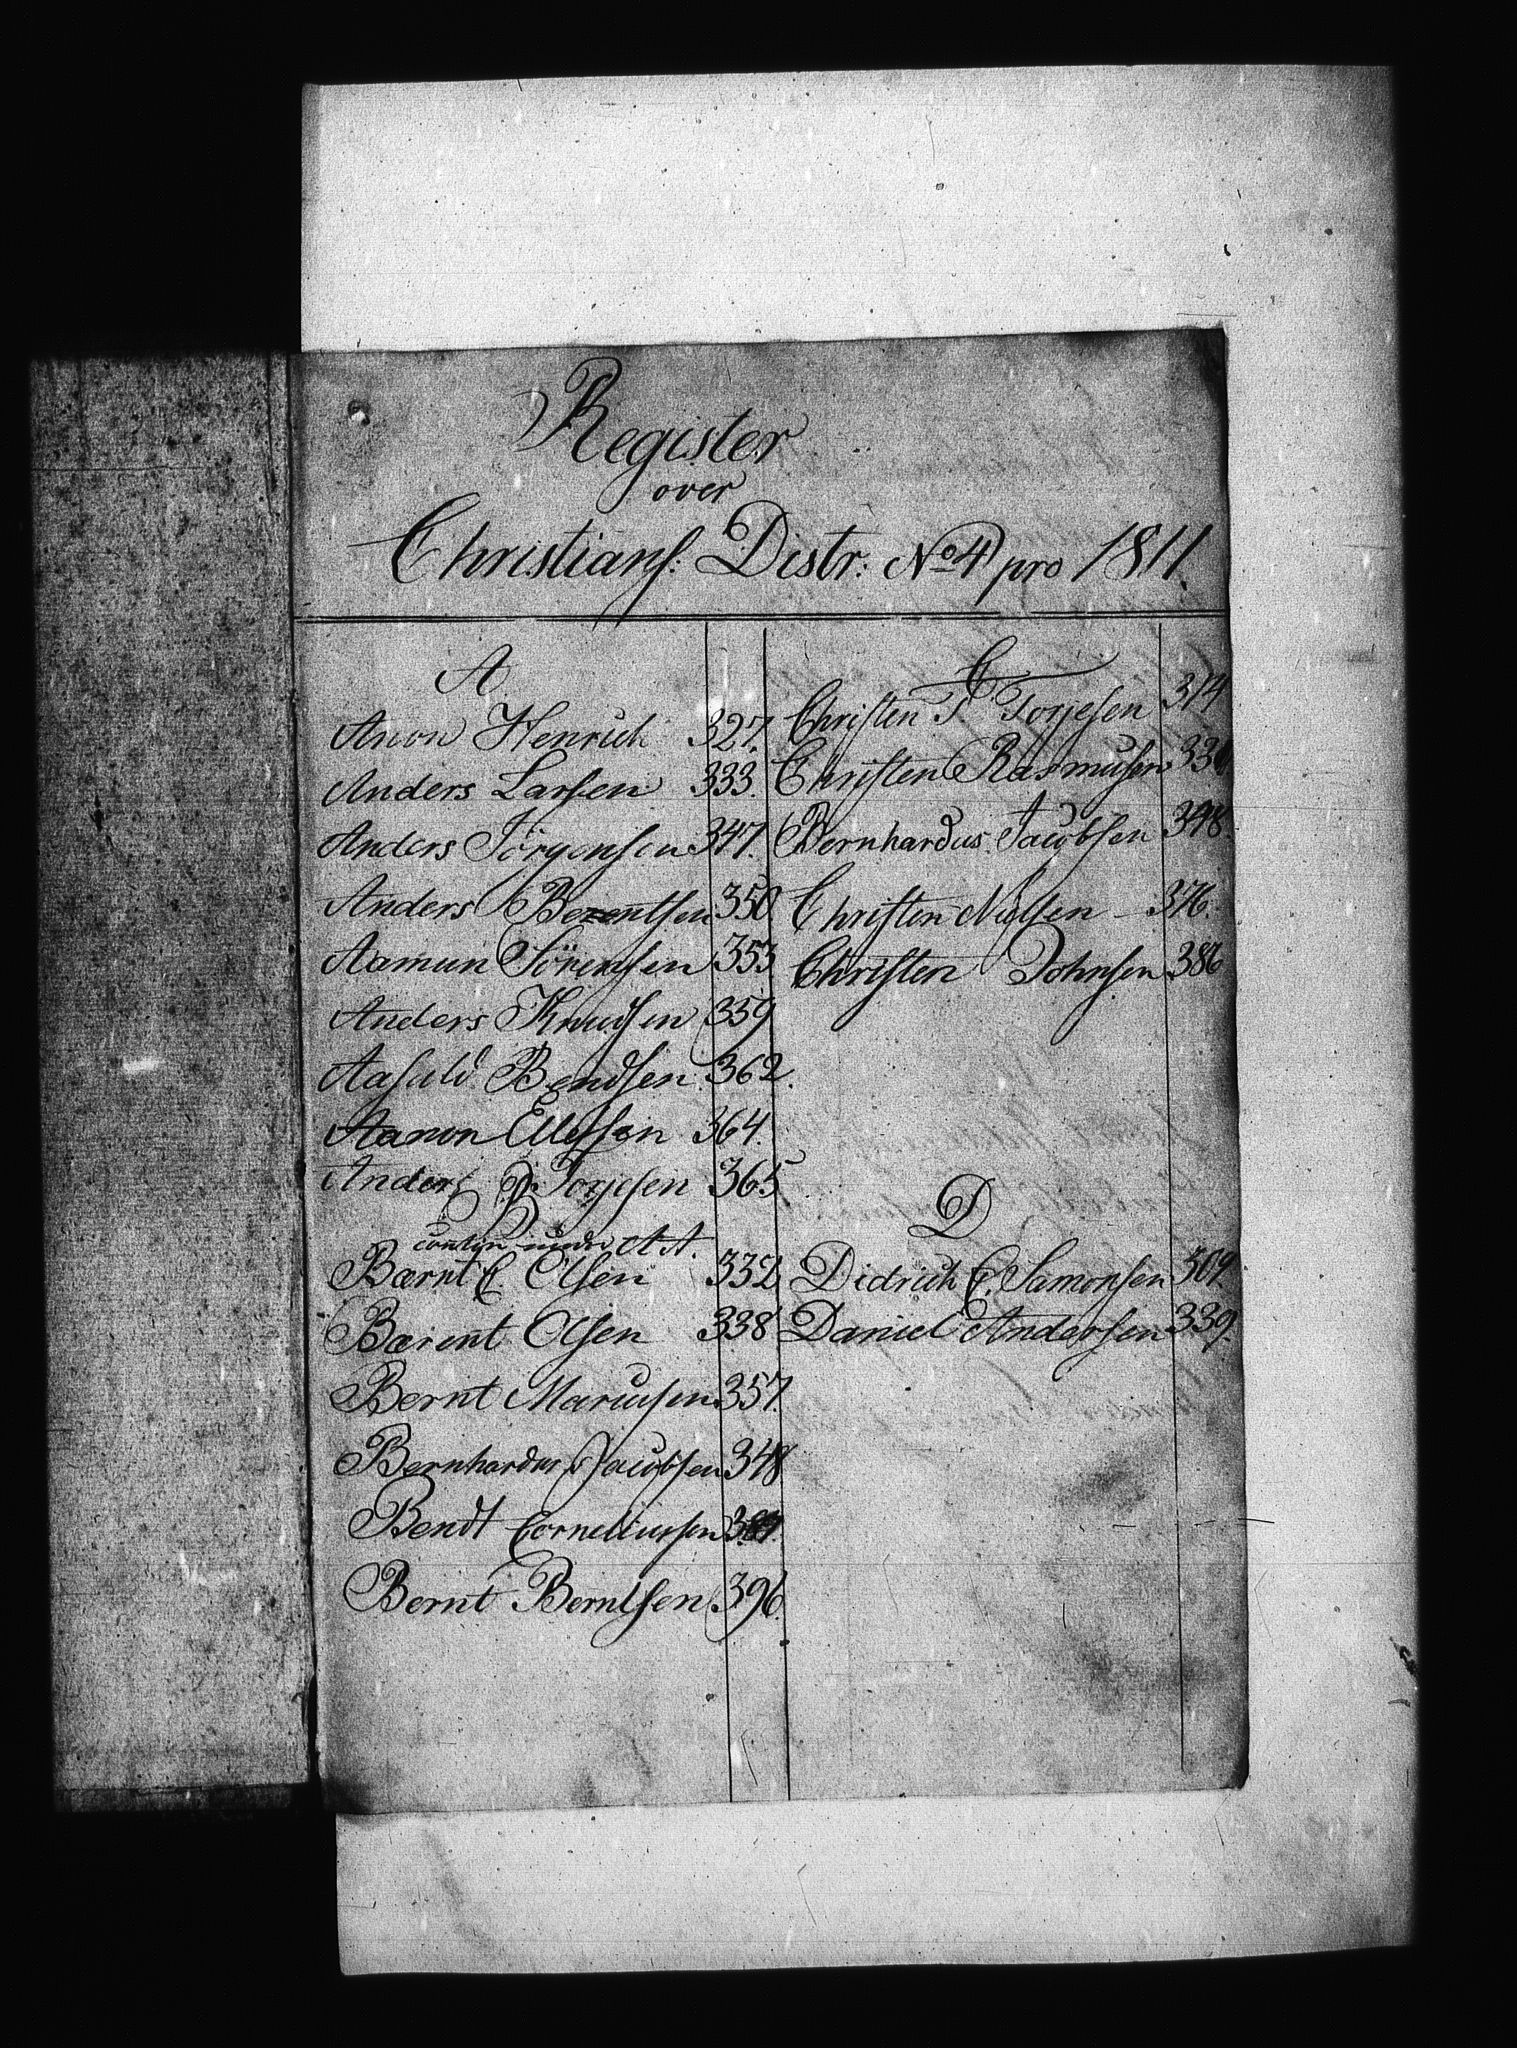 Register
over
Christians: Distr: No 4 pro 1811.
A
Anon Henrich 327.
Anders Larsen 333.
Anders Jörgensen 347.
Anders Berentsen 350
Aamun Sörensen 353
Anders Knudsen 359
Aasuld Bendsen 362.
Aanon Ellefsen 364.
Anders Torjesen 365
B
contin under A A.
Bærnt C Olsen 332
Bærent Olsen 338
Bernt Mariusen 357.
Bernhardus Jacobsen 348
Bendt Corneliussen
Bernt Berntsen 396.
C
Christen T Torjesen 314
Christen Rasmusen
Bernhardus Jacobsen 348
Christen Nielsen 376.
Christen Johnsen 386
D
Didrich C. Samonsen 309
Daniel Andersen 339.